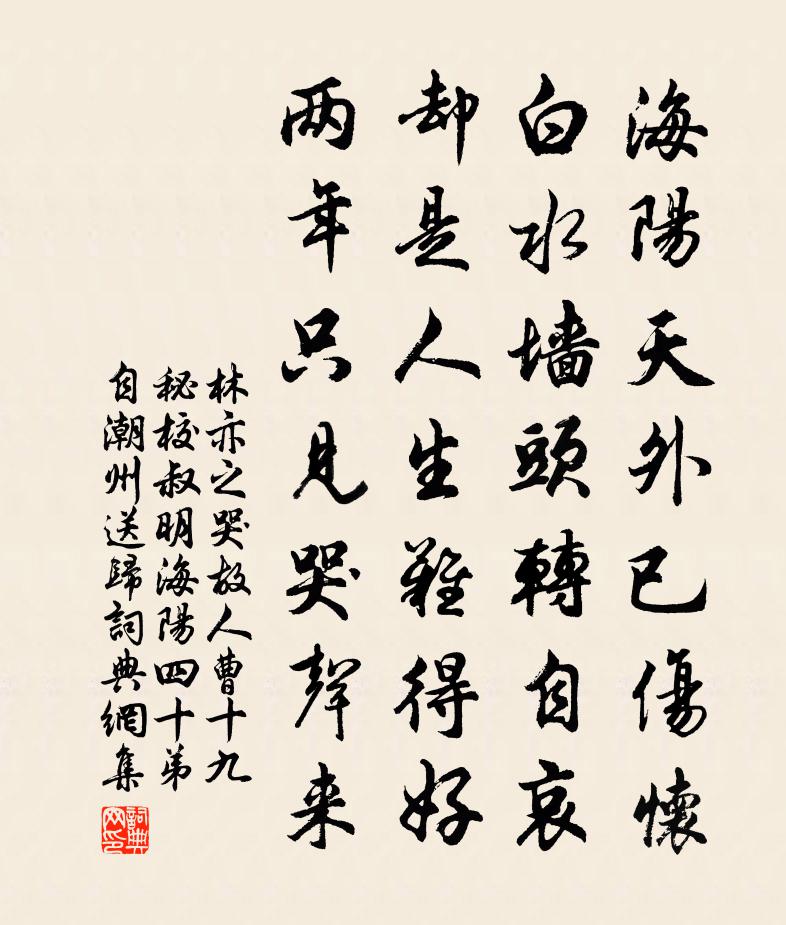 海陽天外已傷懷
白水墻頭轉自哀
却是人生難得好
两年只見哭聲来
林亦之哭故人曹十九
秘校叔明海陽四十弟
自潮州送歸詞典網集
詞典
网印